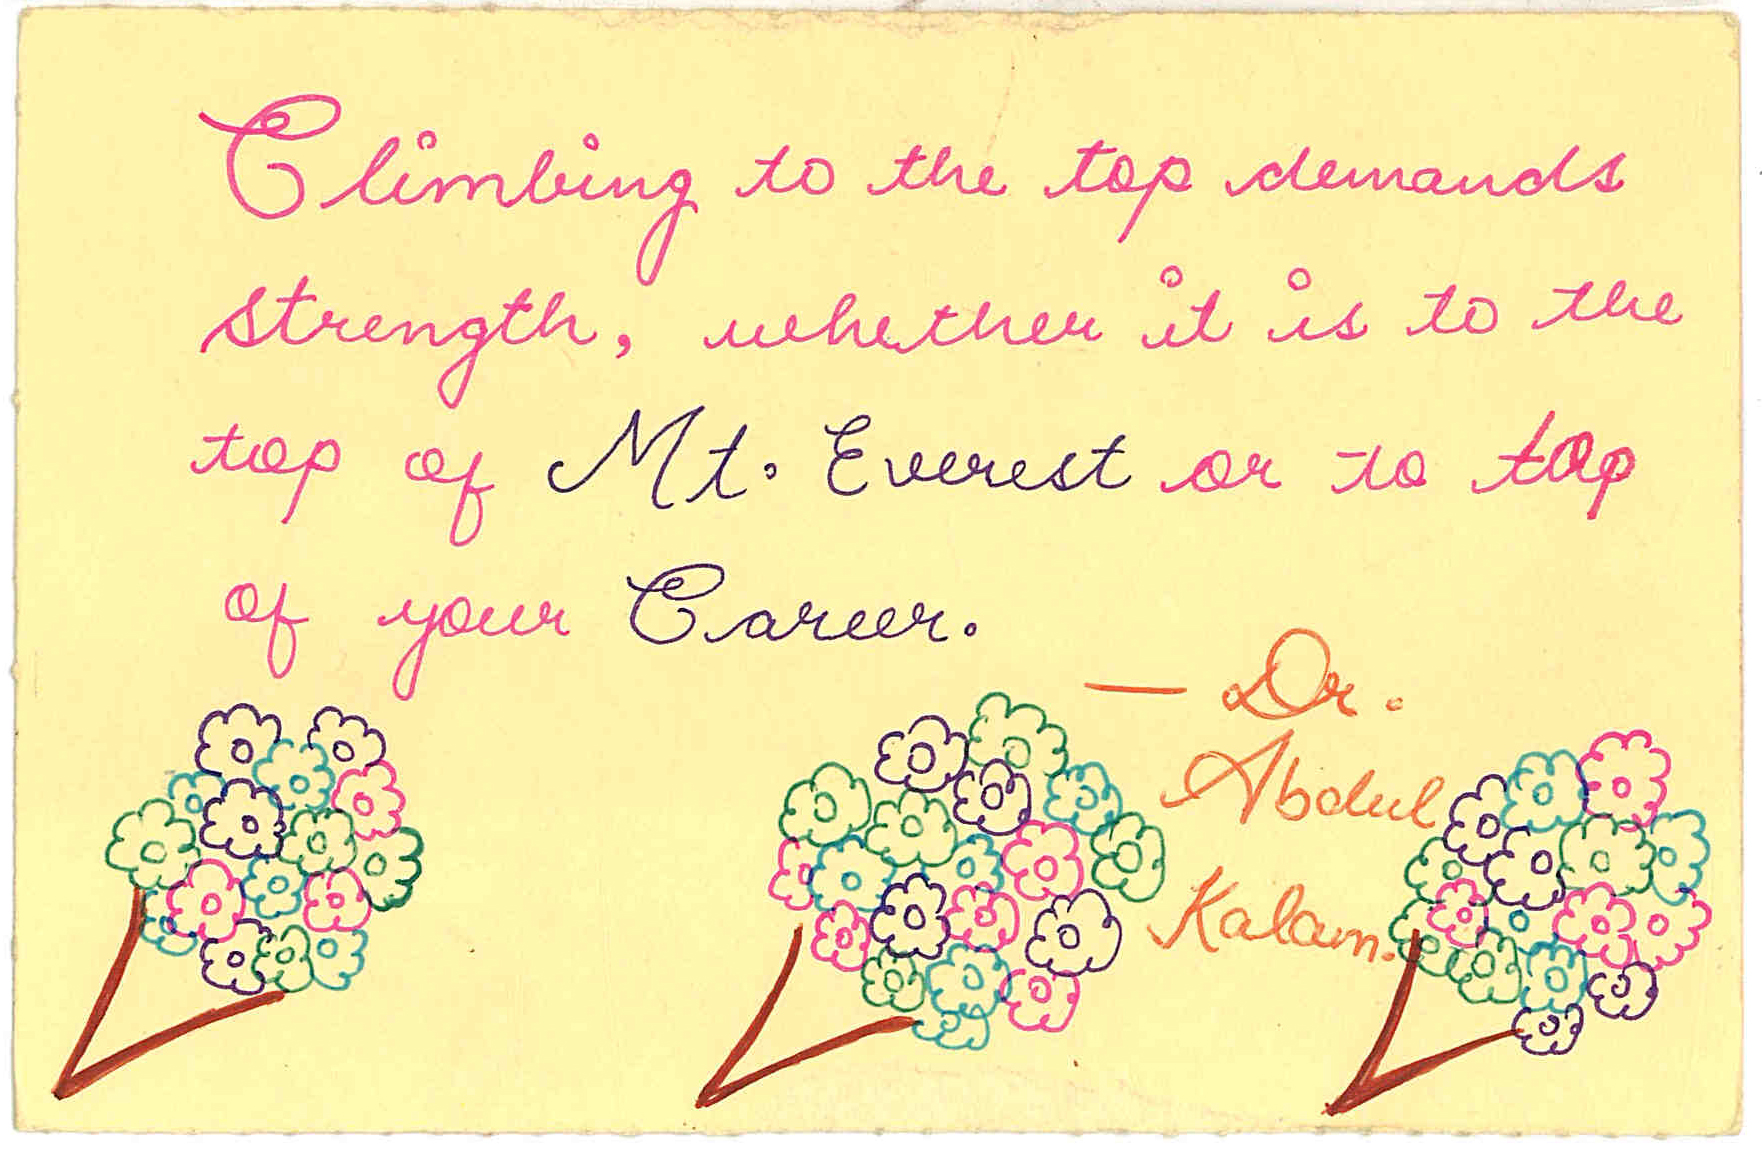 Climbing to the top demands
strength, whether it is to the
top of Mt. Everest or to top
of your Career.
— Dr.
Abdul
Kalam.